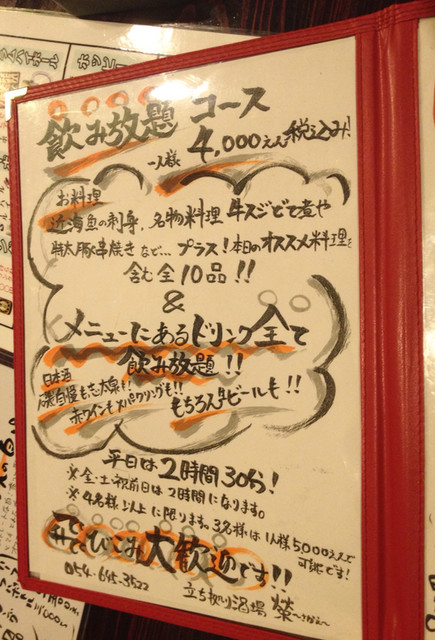 飲み放題 コース
一人様 4,000えん税込み!
お料理
近海魚の刺身、名物料理 牛スジどて煮や
特大豚串焼きなど… プラス!本日のオススメ料理を
含む全10品!!
&
メニューにあるドリンク全て
飲み放題!!
日本酒
磯自慢も志太泉も!!
赤ワインもスパークリングも!!
もちろん生ビールも!!
平日は2時間30分!
※金・土・祝前日は2時間になります。
※4名様以上に限ります。3名様は1人様5,000えんで
可能です!
飛びこみ大歓迎です!!
054-645-3522
立ち吞み酒場 榮 〜さかえ〜